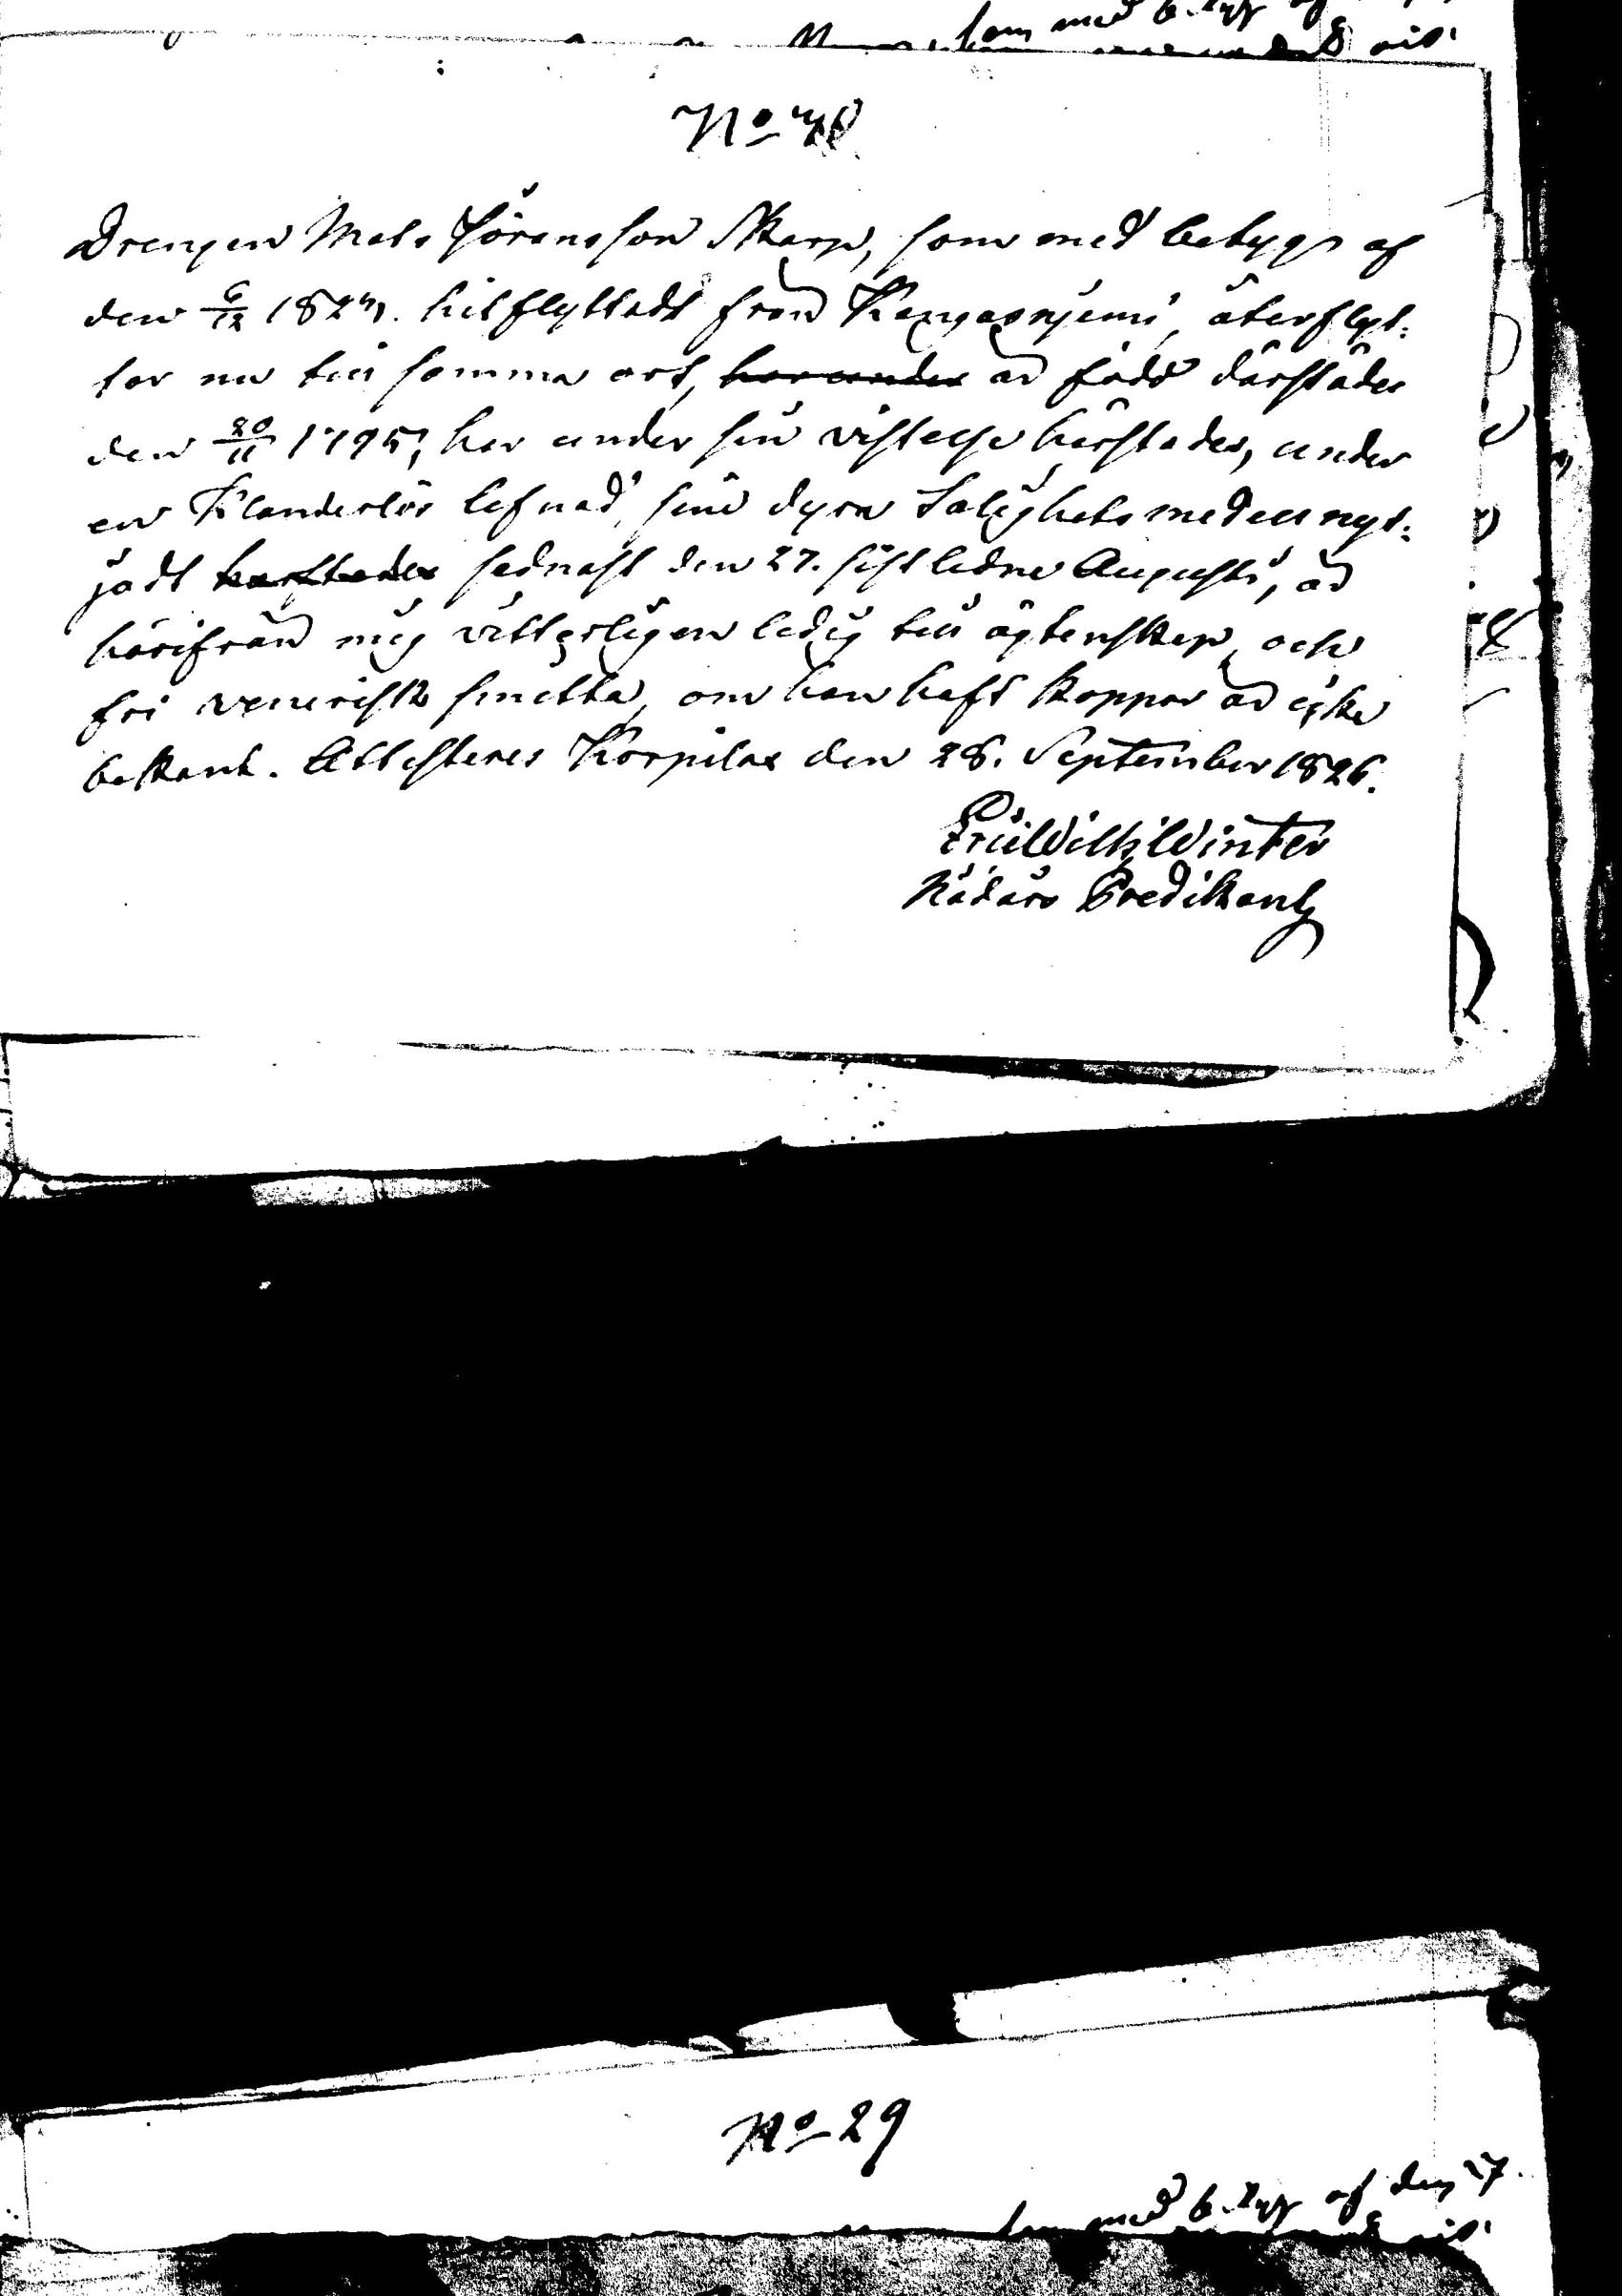 som med b.tyg
No 28
Drengen Mats Göransson Skarp, som med betygs af
den 6/12 1824. hitflyttadt från Kangasnjemi, återflyt-
tar nu till samma ort, har under är född därstädes
den 20/11 1795, har under sin vistelse härstädes, under
en Klanderlös lefnad, sine dyra Salighets medell nyt-
jadt härstädes sednast den 27. sistledne Augusti, är
härifrån mig vitterligen ledig till ägtenskap och
fri venerisk smitta, om han haft koppor är icke
bekant. Attesteres Korpilax den 28. September 1826.
Eric Wilh. Winter
Nådårs Predikant
No 29
som med b.tyg af den 17